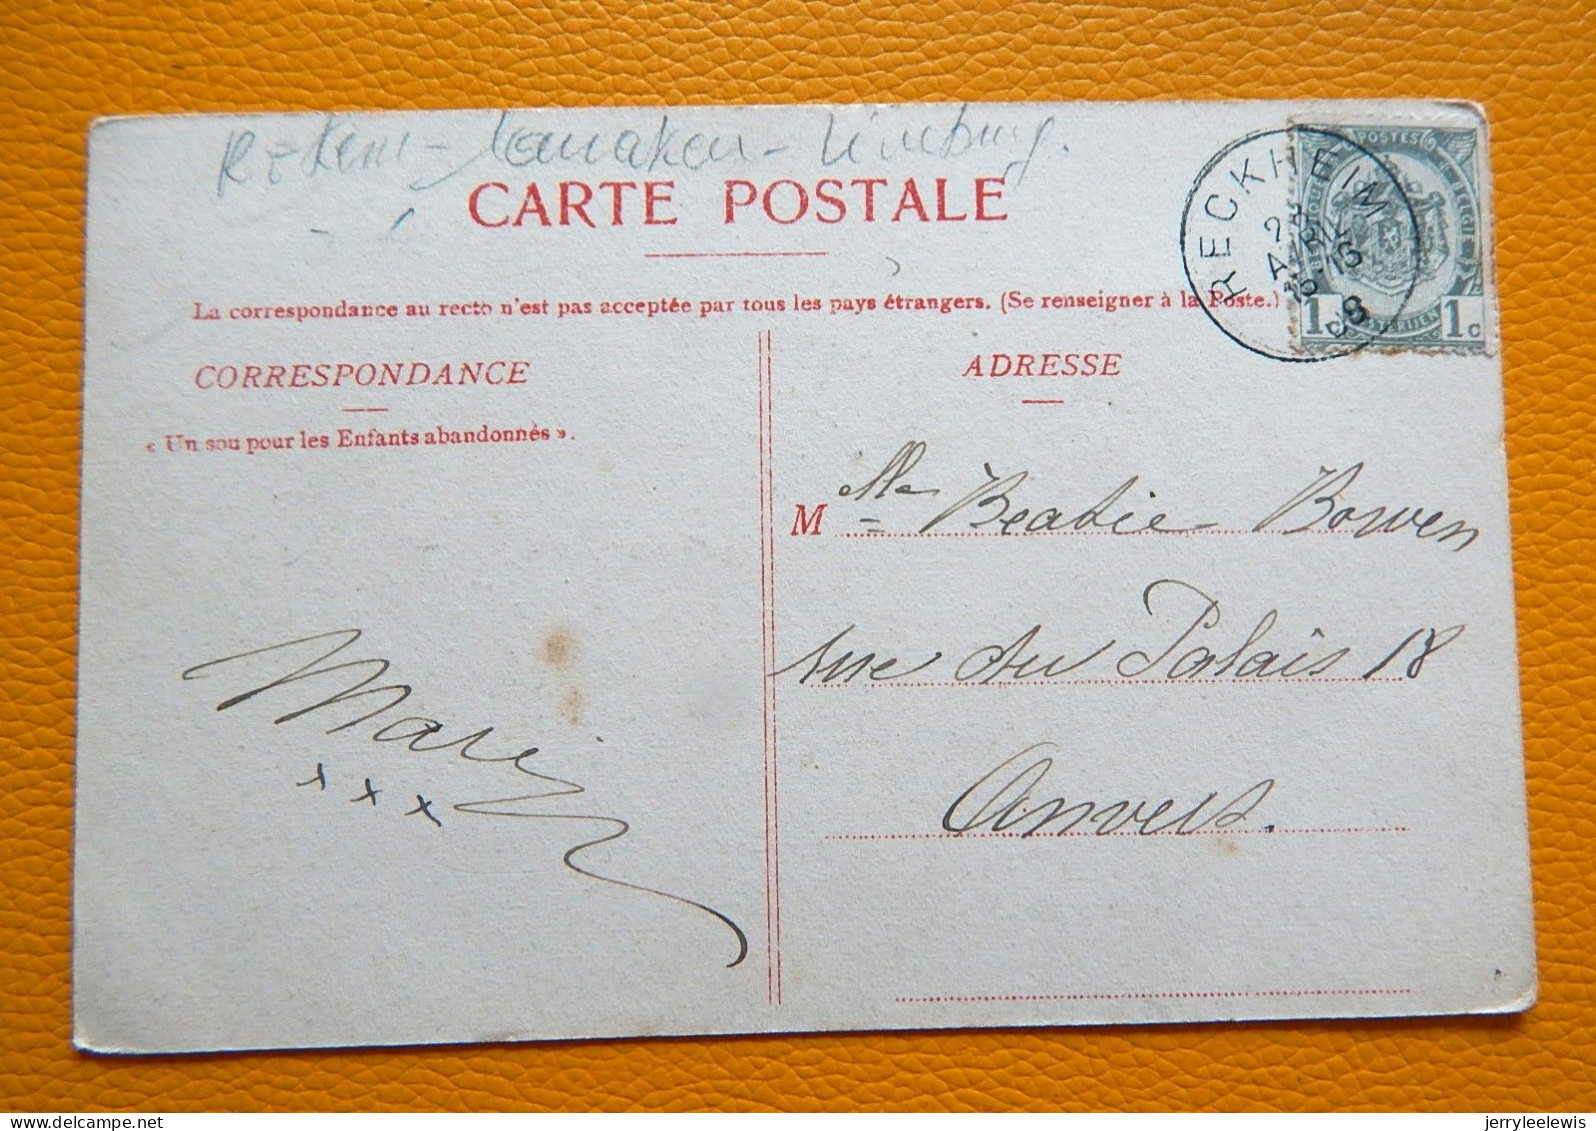 Rekem - Lanaken - Limburg.
CARTE POSTALE
La correspondance au recto n'est pas acceptée par tous les pays étrangers. (Se renseigner à la Poste.)
CORRESPONDANCE
« Un sou pour les Enfants abandonnés ».
Marie
x x x
ADRESSE
M elle Beatie Bowen
rue du Palais 18
Anvers.
RECKHEIM
POSTES
BELGIE
1c 1c
jerryleelewis